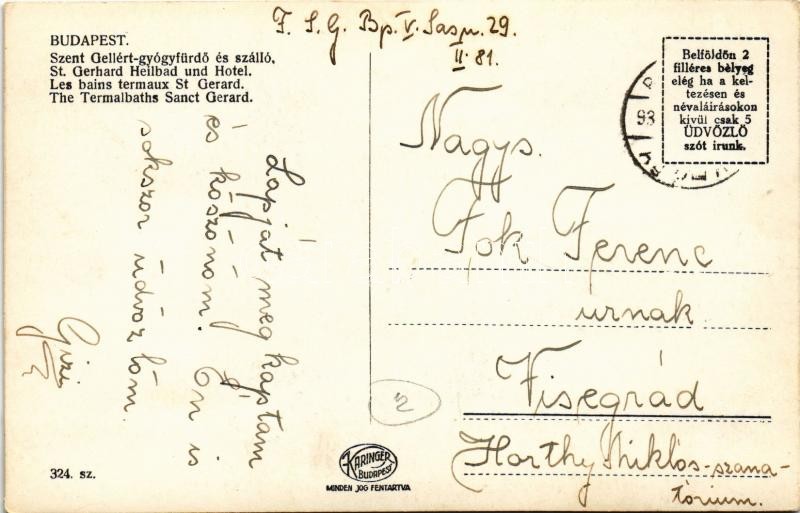 F. S. G. Bp. V. Sas u. 29.
II. 81.
BUDAPEST.
Szent Gellért-gyógyfürdő és szálló.
St. Gerhard Heilbad und Hotel.
Les bains termaux St Gerard.
The Termalbaths Sanct Gerard.
Belföldön 2
filléres bélyeg
elég ha a kel-
tezésen és
névaláírásokon
kívül csak 5
ÜDVÖZLŐ
szót irunk.
93
Lapját meg kaptam
és köszönöm. Én is
sokszor üdvözlöm
Gizi
Nagys.
Fok Ferenc
urnak
Visegrád
Horthy Miklós-szana-
tórium.
2
324. sz.
KARINGER
BUDAPEST
MINDEN JOG FENTARTVA